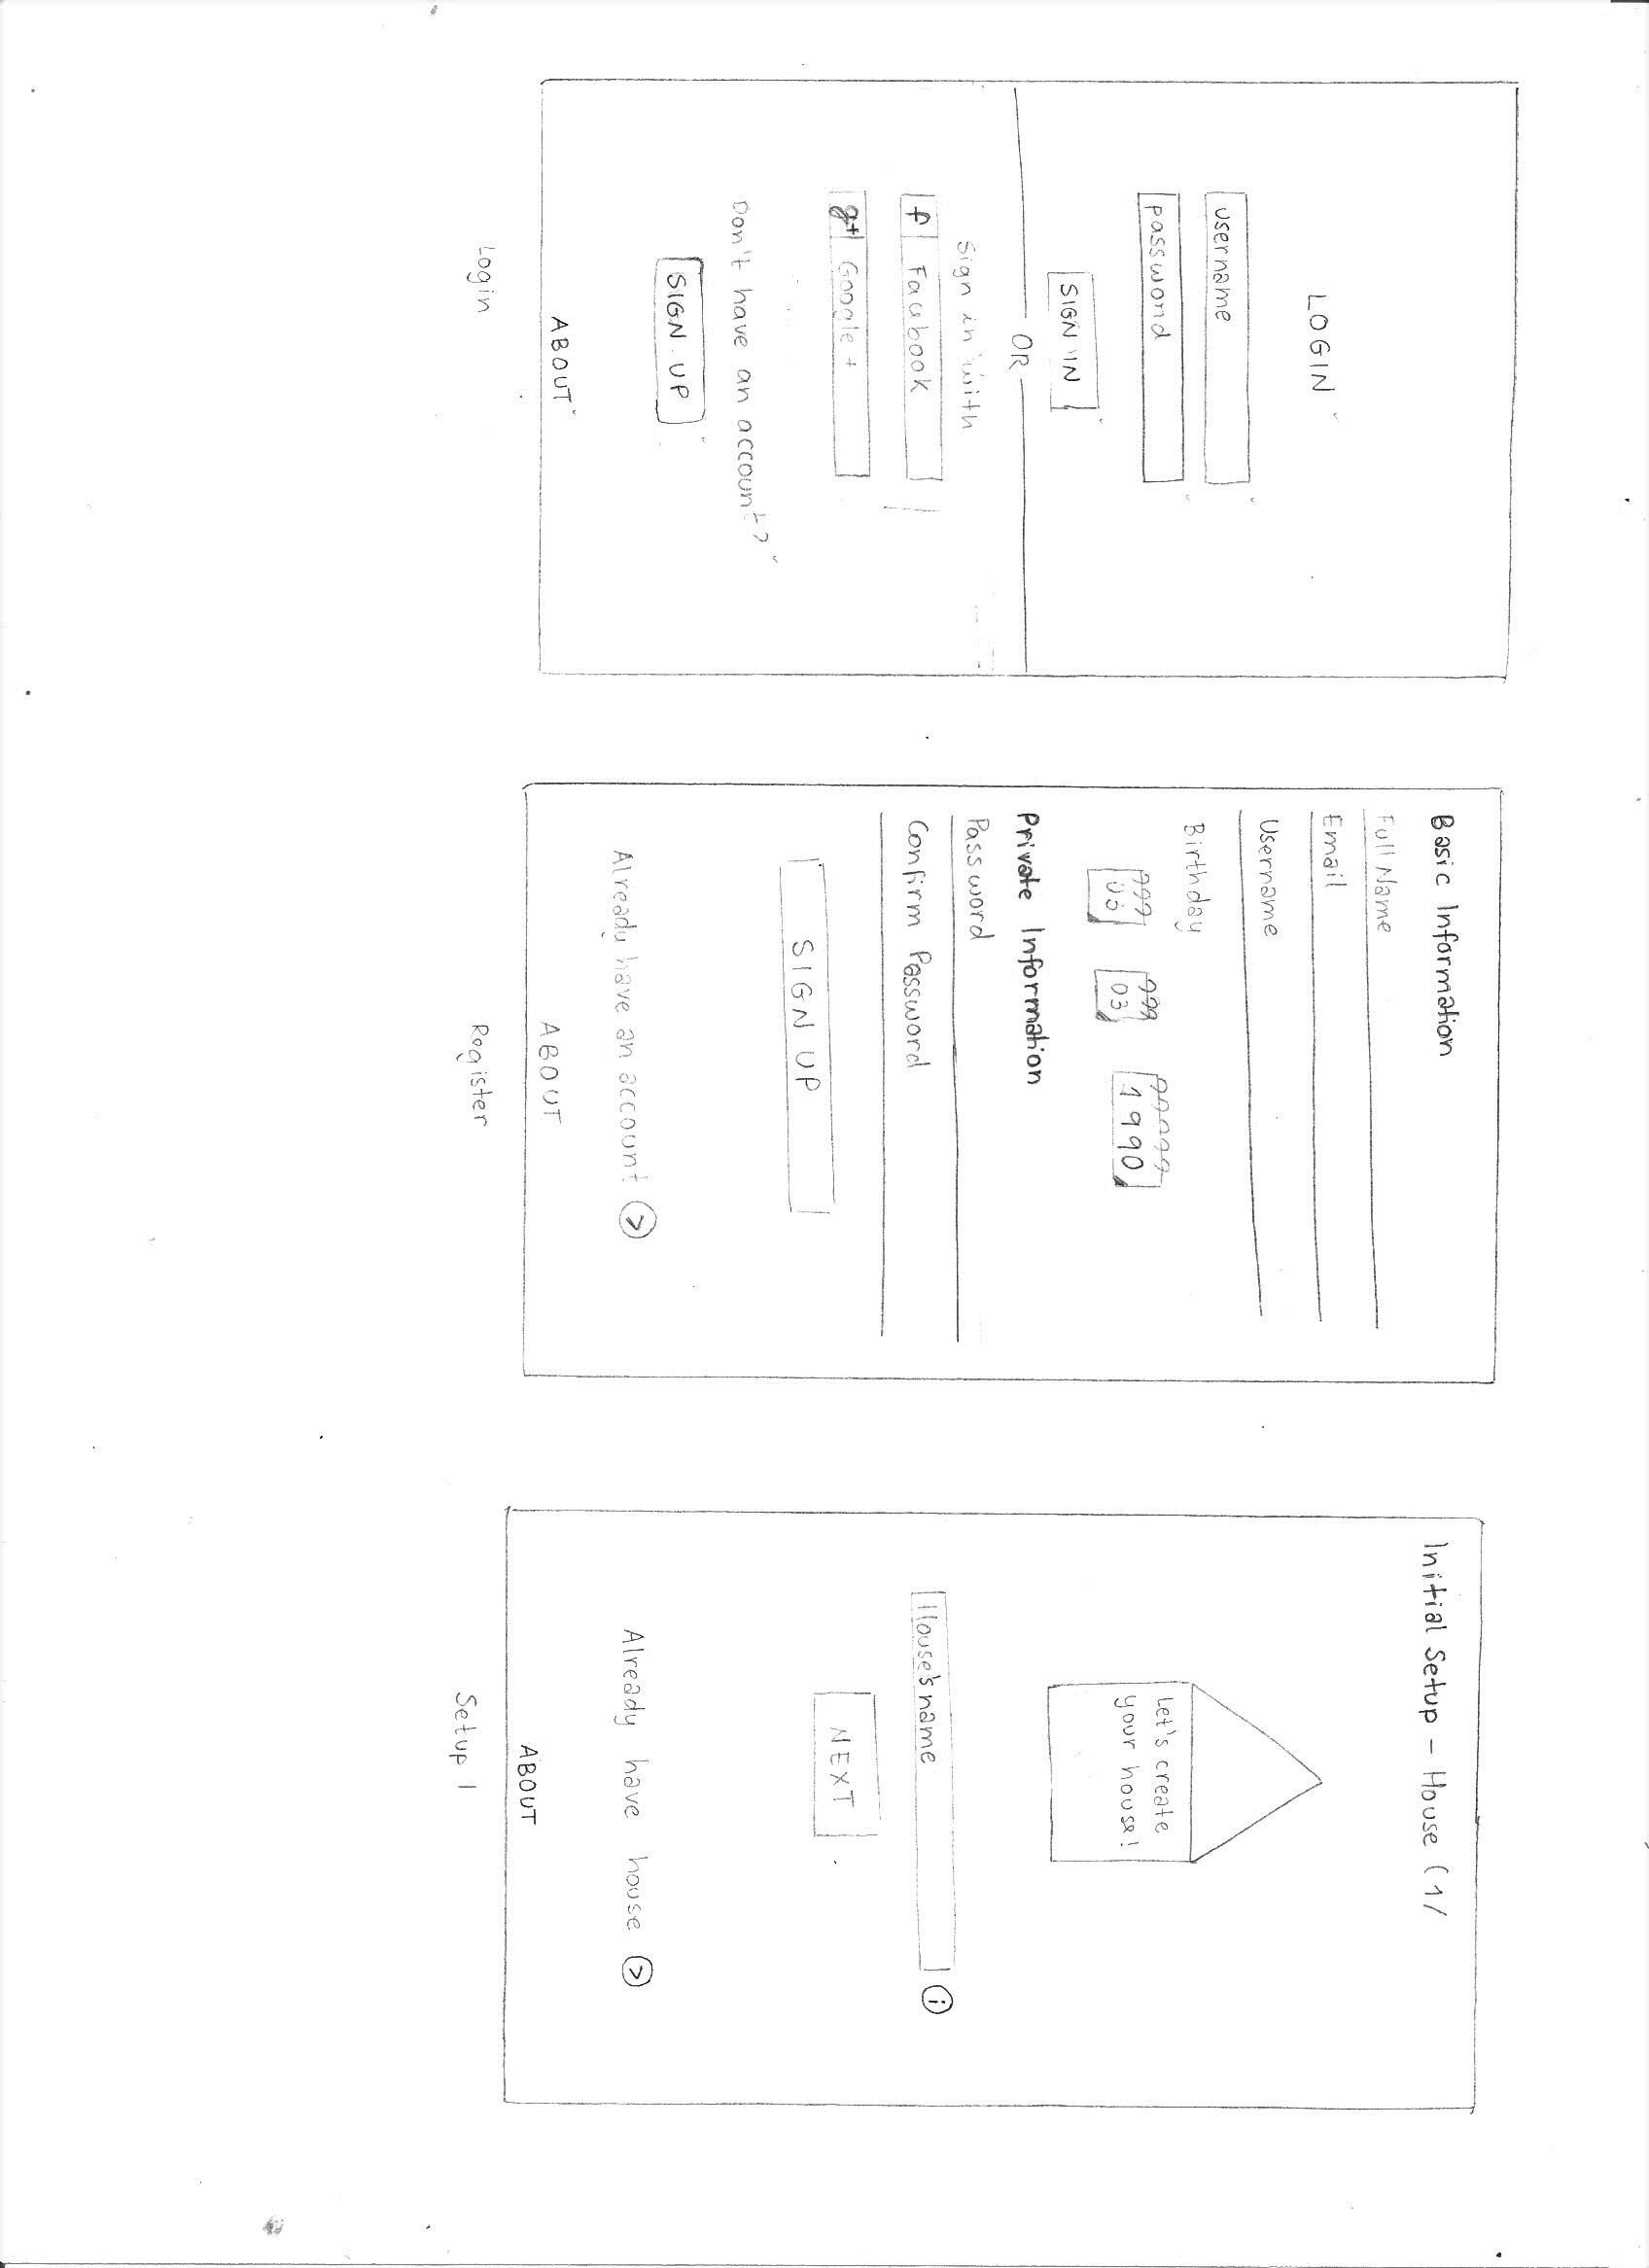 LOGIN
username
password
SIGN IN
OR
Sign in with
f Facebook
g+ Google +
Don't have an account?
SIGN UP
ABOUT
Login
Basic Information
Full Name
Email
Username
Birthday
03 1990
Private Information
Password
Confirm Password
SIGN UP
Already have an account >
ABOUT
Register
Initial Setup - House (1/
Let's create
your house!
House's name i
NEXT
Already have house >
ABOUT
Setup 1